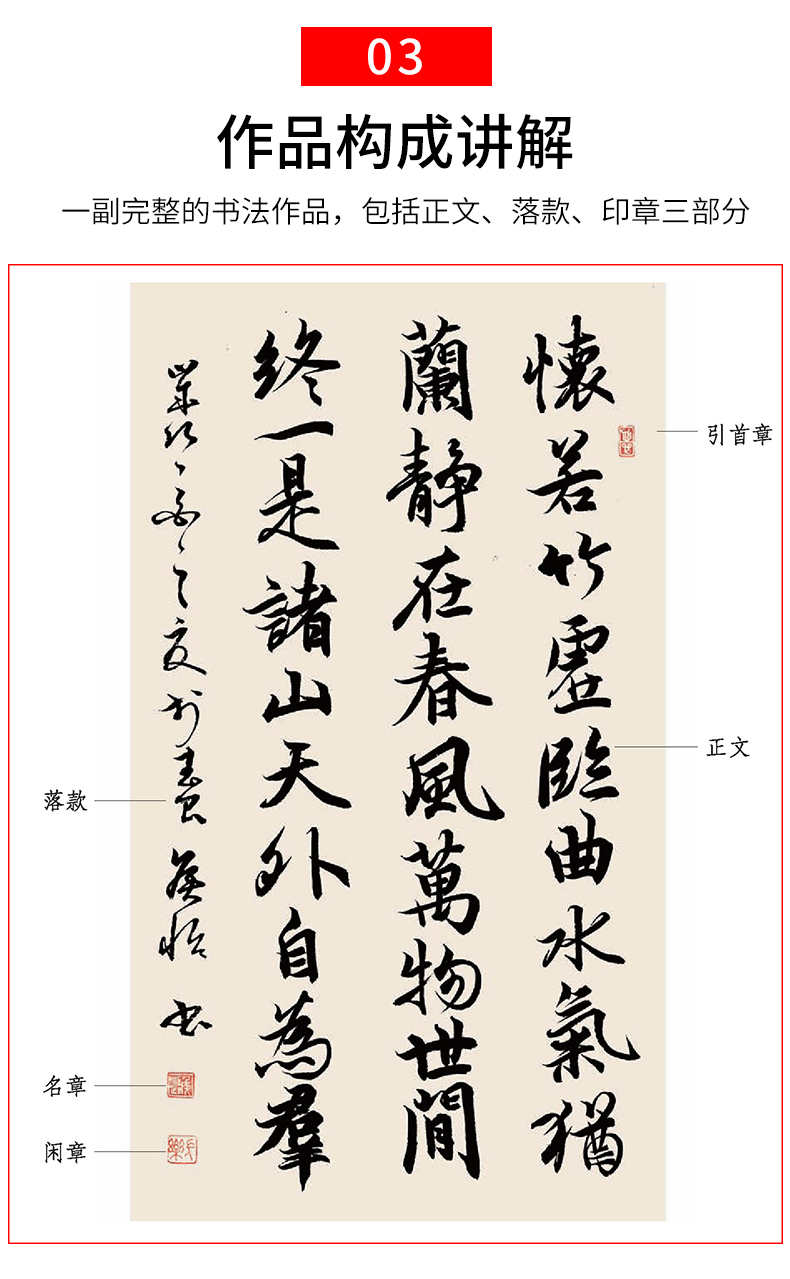 03
作品构成讲解
一副完整的书法作品，包括正文、落款、印章三部分
懷若竹虛臨曲水氣猶
蘭靜在春風萬物世間
終一是諸山天外自為羣
書
引首章
正文
落款
名章
闲章